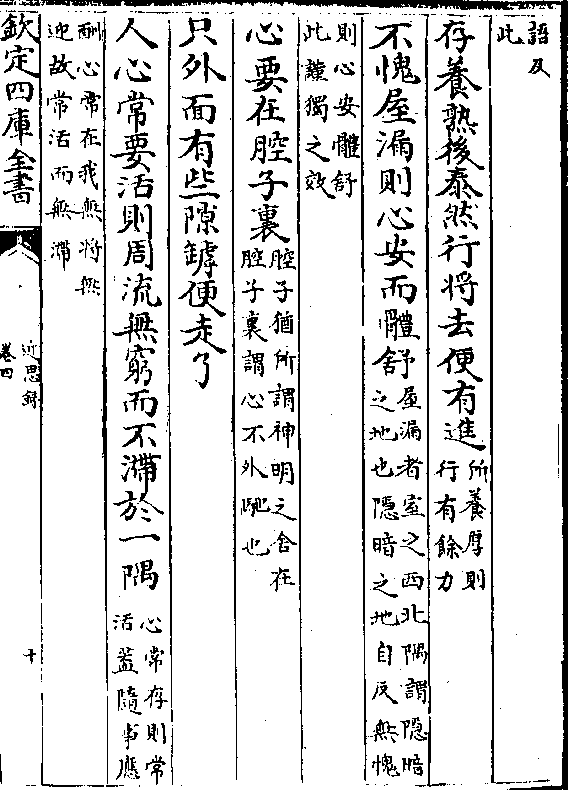 語及
此
存養熟後泰然行將去便有進所養厚則
行有餘力
不愧屋漏則心安而體舒屋漏者室之西北隅謂隱暗
之地也隱暗之地自反無愧
則心安體舒
此謹獨之效
心要在腔子裏腔子猶所謂神明之舍在
腔子裏謂心不外馳也
只外面有些隙罅便走了
人心常要活則周流無窮而不滯於一隅心常存則常
活蓋隨事應
酬心常在我無將無
迎故常活而無滯
欽定四庫全書
近思録
卷四
十